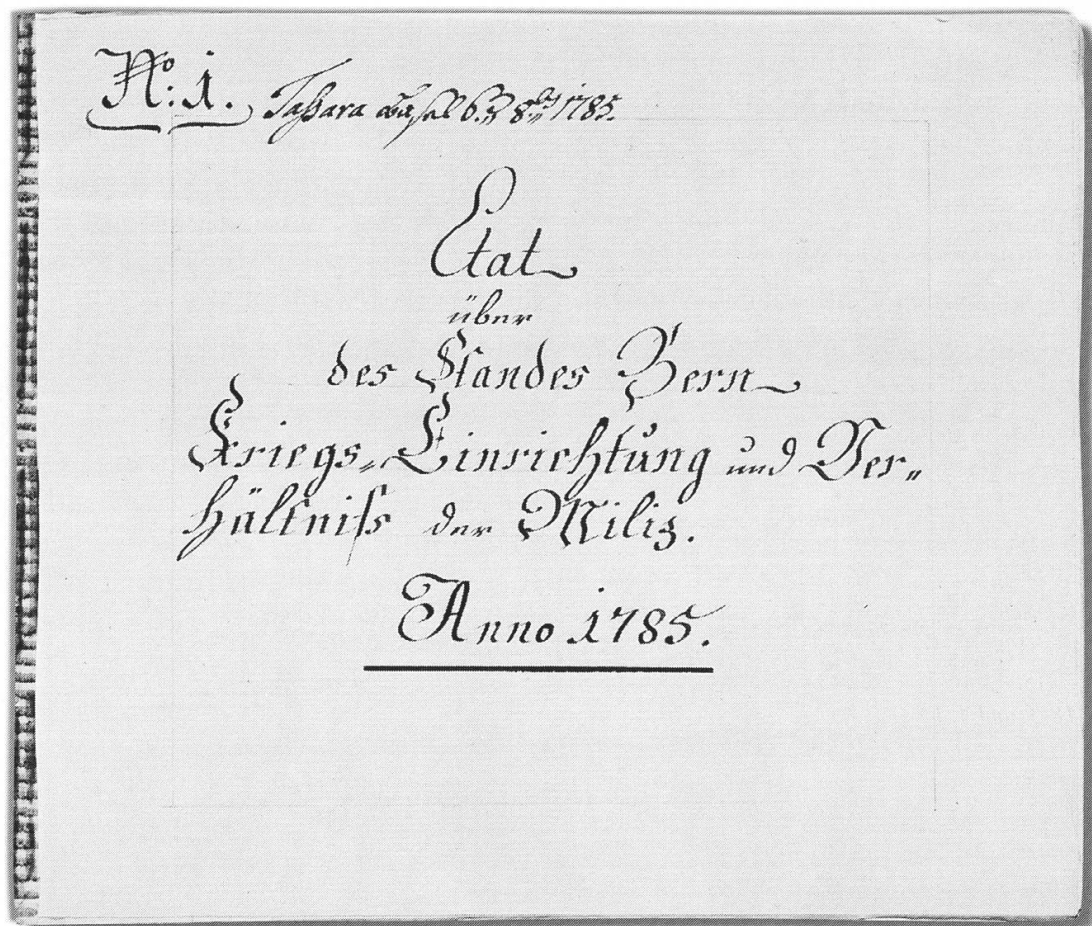 No: 1. Tassara 6. 8br 1785.
Etat
über
des Standes Bern
Kriegs-Einrichtung und Ver-
hältniss der Miliz.
Anno 1785.